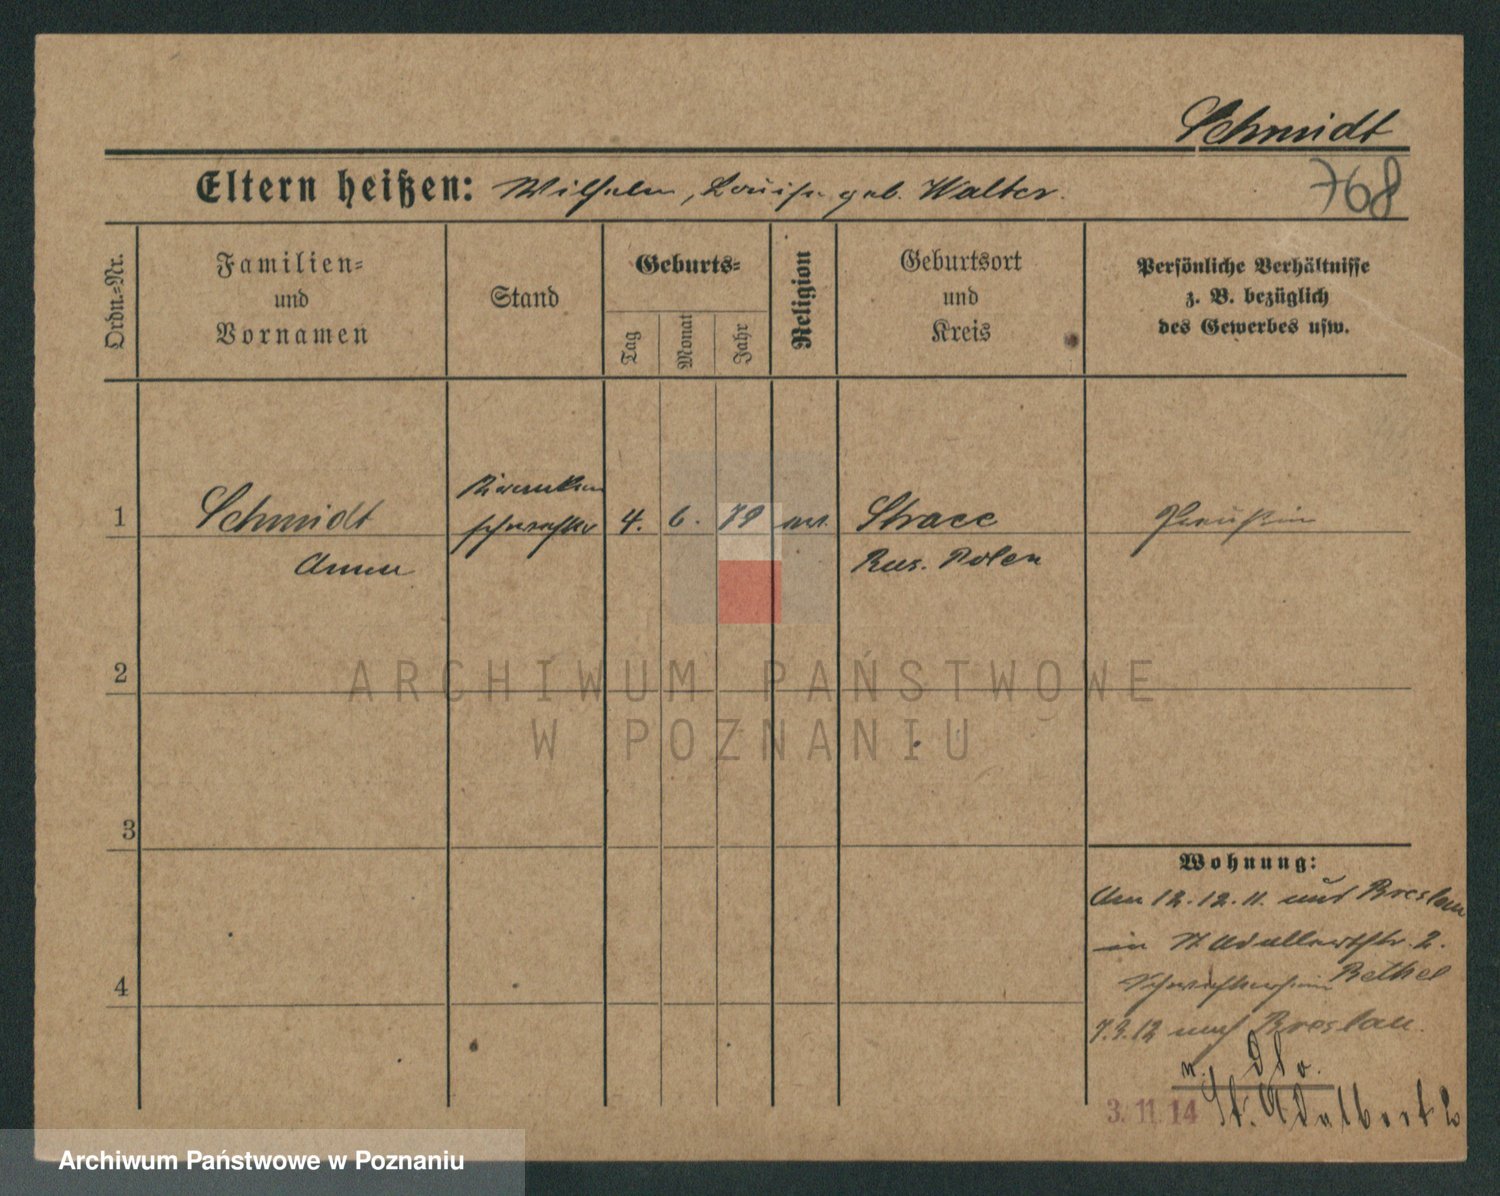 Schmidt
Eltern heißen: Wilhelm, Louise geb. Walter.
768
Ordn.-Nr.
Familien-
und
Vornamen
Stand
Geburts-
Tag
Monat
Jahr
Religion
Geburtsort
und
Kreis
Persönliche Verhältnisse
z. B. bezüglich
des Gewerbes usw.
1
Schmidt
Anna
Kranken
schwester
4. 6. 79 ev.
Strace
Rus. Polen
Preußin
2
3
4
Wohnung:
Am 12.12.11. Breslau
in St. Adalbertstr. 2.
Schwesternheim Bethel
7.9.12 nach Breslau.
v. do.
3. 11. 14 St. Adalbert 2
ARCHIWUM PAŃSTWOWE
W POZNANIU
Archiwum Państwowe w Poznaniu